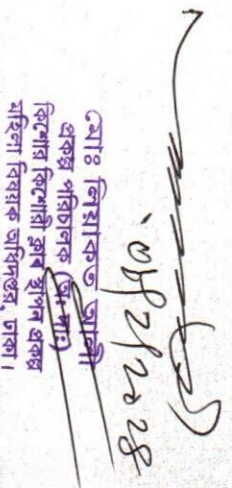 ০৮/২/২০২৪
মোঃ লিয়াকত আলী
প্রকল্প পরিচালক (অঃ দাঃ)
কিশোর কিশোরী ক্লাব স্থাপন প্রকল্প
মহিলা বিষয়ক অধিদপ্তর, ঢাকা।